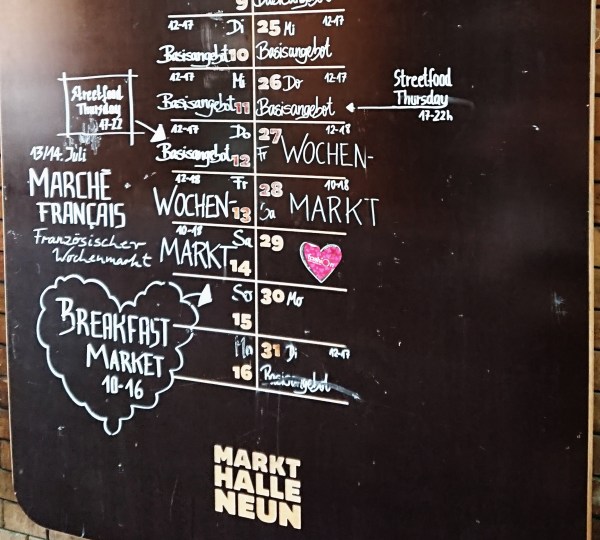 9
Basisangebot
12-17 Di
Basisangebot 10
12-17 Mi
Basisangebot 11
12-17 Do
Basisangebot 12
12-18 Fr
WOCHEN- 13
10-18 Sa
MARKT 14
So
15
Mo
16
25 Mi 12-17
Basisangebot
26 Do 12-17
Basisangebot
27 12-18
Fr WOCHEN-
28 10-18
Sa MARKT
29
30 Mo
31 Di 12-17
Basisangebot
Streetfood
Thursday
17-22
13/14. Juli
MARCHÉ
FRANÇAIS
Französischer
Wochenmarkt
BREAKFAST
MARKET
10-16
Streetfood
Thursday
17-22h
MARKT
HALLE
NEUN